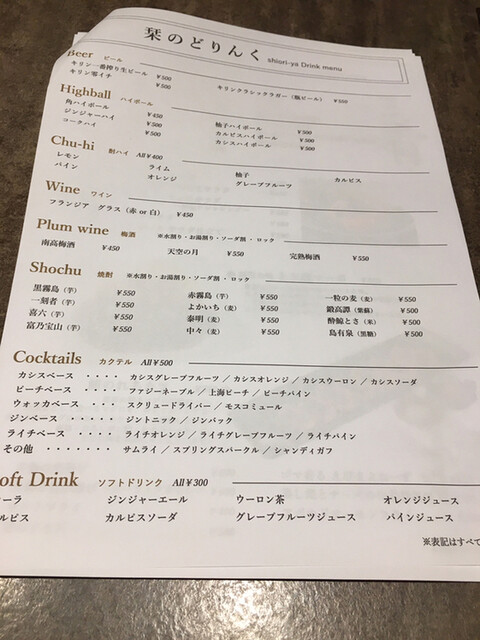 栞のどりんく shiori-ya Drink menu
Beer ビール
キリン一番搾り生ビール ¥500 キリンクラシックラガー（瓶ビール） ¥550
キリン零イチ ¥500
Highball ハイボール
角ハイボール ¥450 柚子ハイボール ¥500
ジンジャーハイ ¥500 カルピスハイボール ¥500
コークハイ ¥500 カシスハイボール ¥500
Chu-hi 酎ハイ All¥400
レモン ライム 柚子 カルピス
パイン オレンジ グレープフルーツ
Wine ワイン
フランジア グラス（赤 or 白） ¥450
Plum wine 梅酒 ※水割り・お湯割り・ソーダ割・ロック
南高梅酒 ¥450 天空の月 ¥550 完熟梅酒 ¥550
Shochu 焼酎 ※水割り・お湯割り・ソーダ割・ロック
黒霧島（芋） ¥550 赤霧島（芋） ¥550 一粒の麦（麦） ¥550
一刻者（芋） ¥550 よかいち（麦） ¥500 鍛高譚（紫蘇） ¥500
喜六（芋） ¥550 泰明（麦） ¥550 酔鯨とさ（米） ¥500
富乃宝山（芋） ¥550 中々（麦） ¥550 島有泉（黒糖） ¥500
Cocktails カクテル All¥500
カシスベース ・・・・ カシスグレープフルーツ / カシスオレンジ / カシスウーロン / カシスソーダ
ピーチベース ・・・・ ファジーネーブル / 上海ピーチ / ピーチパイン
ウォッカベース ・・・・ スクリュードライバー / モスコミュール
ジンベース ・・・・ ジントニック / ジンバック
ライチベース ・・・・ ライチオレンジ / ライチグレープフルーツ / ライチパイン
その他 ・・・・・・・ サムライ / スプリングスパークル / シャンディガフ
oft Drink ソフトドリンク All¥300
ーラ ジンジャーエール ウーロン茶 オレンジジュース
ルピス カルピスソーダ グレープフルーツジュース パインジュース
※表記はすべて